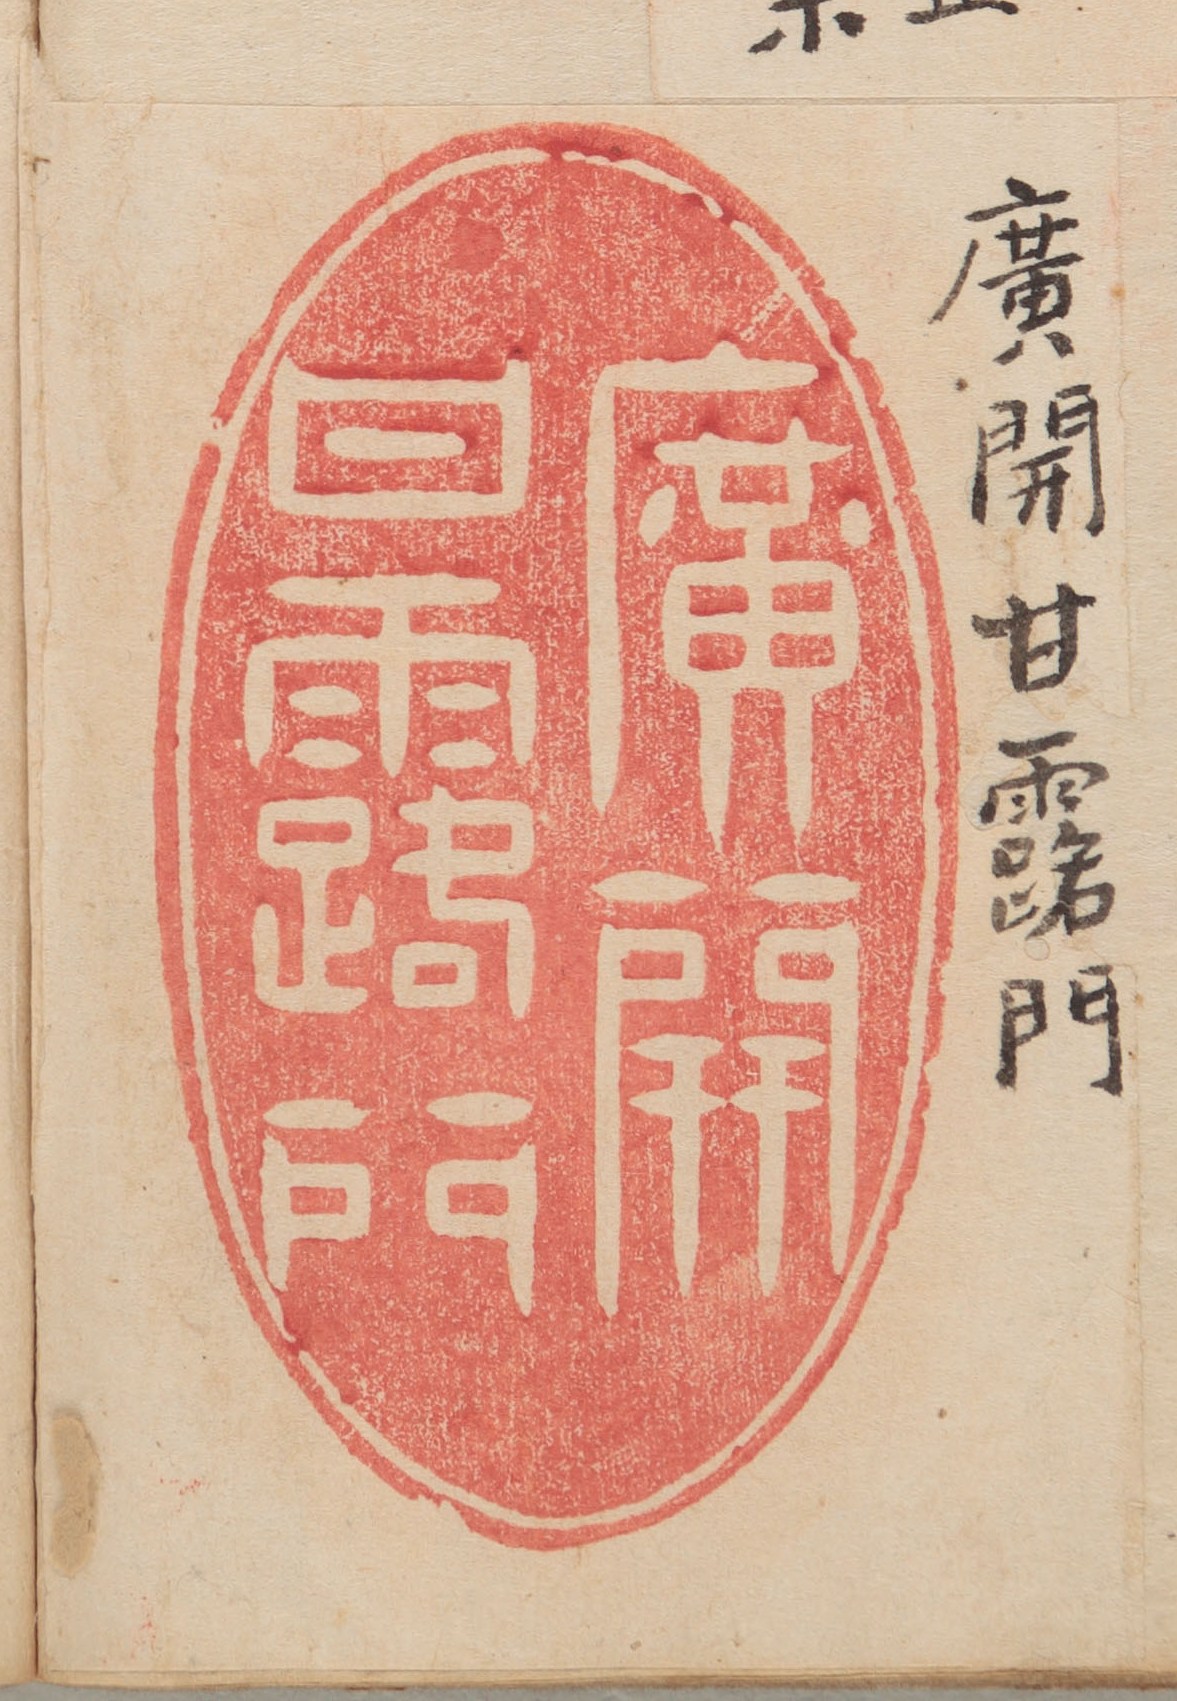 廣開甘露門
廣開
甘露門